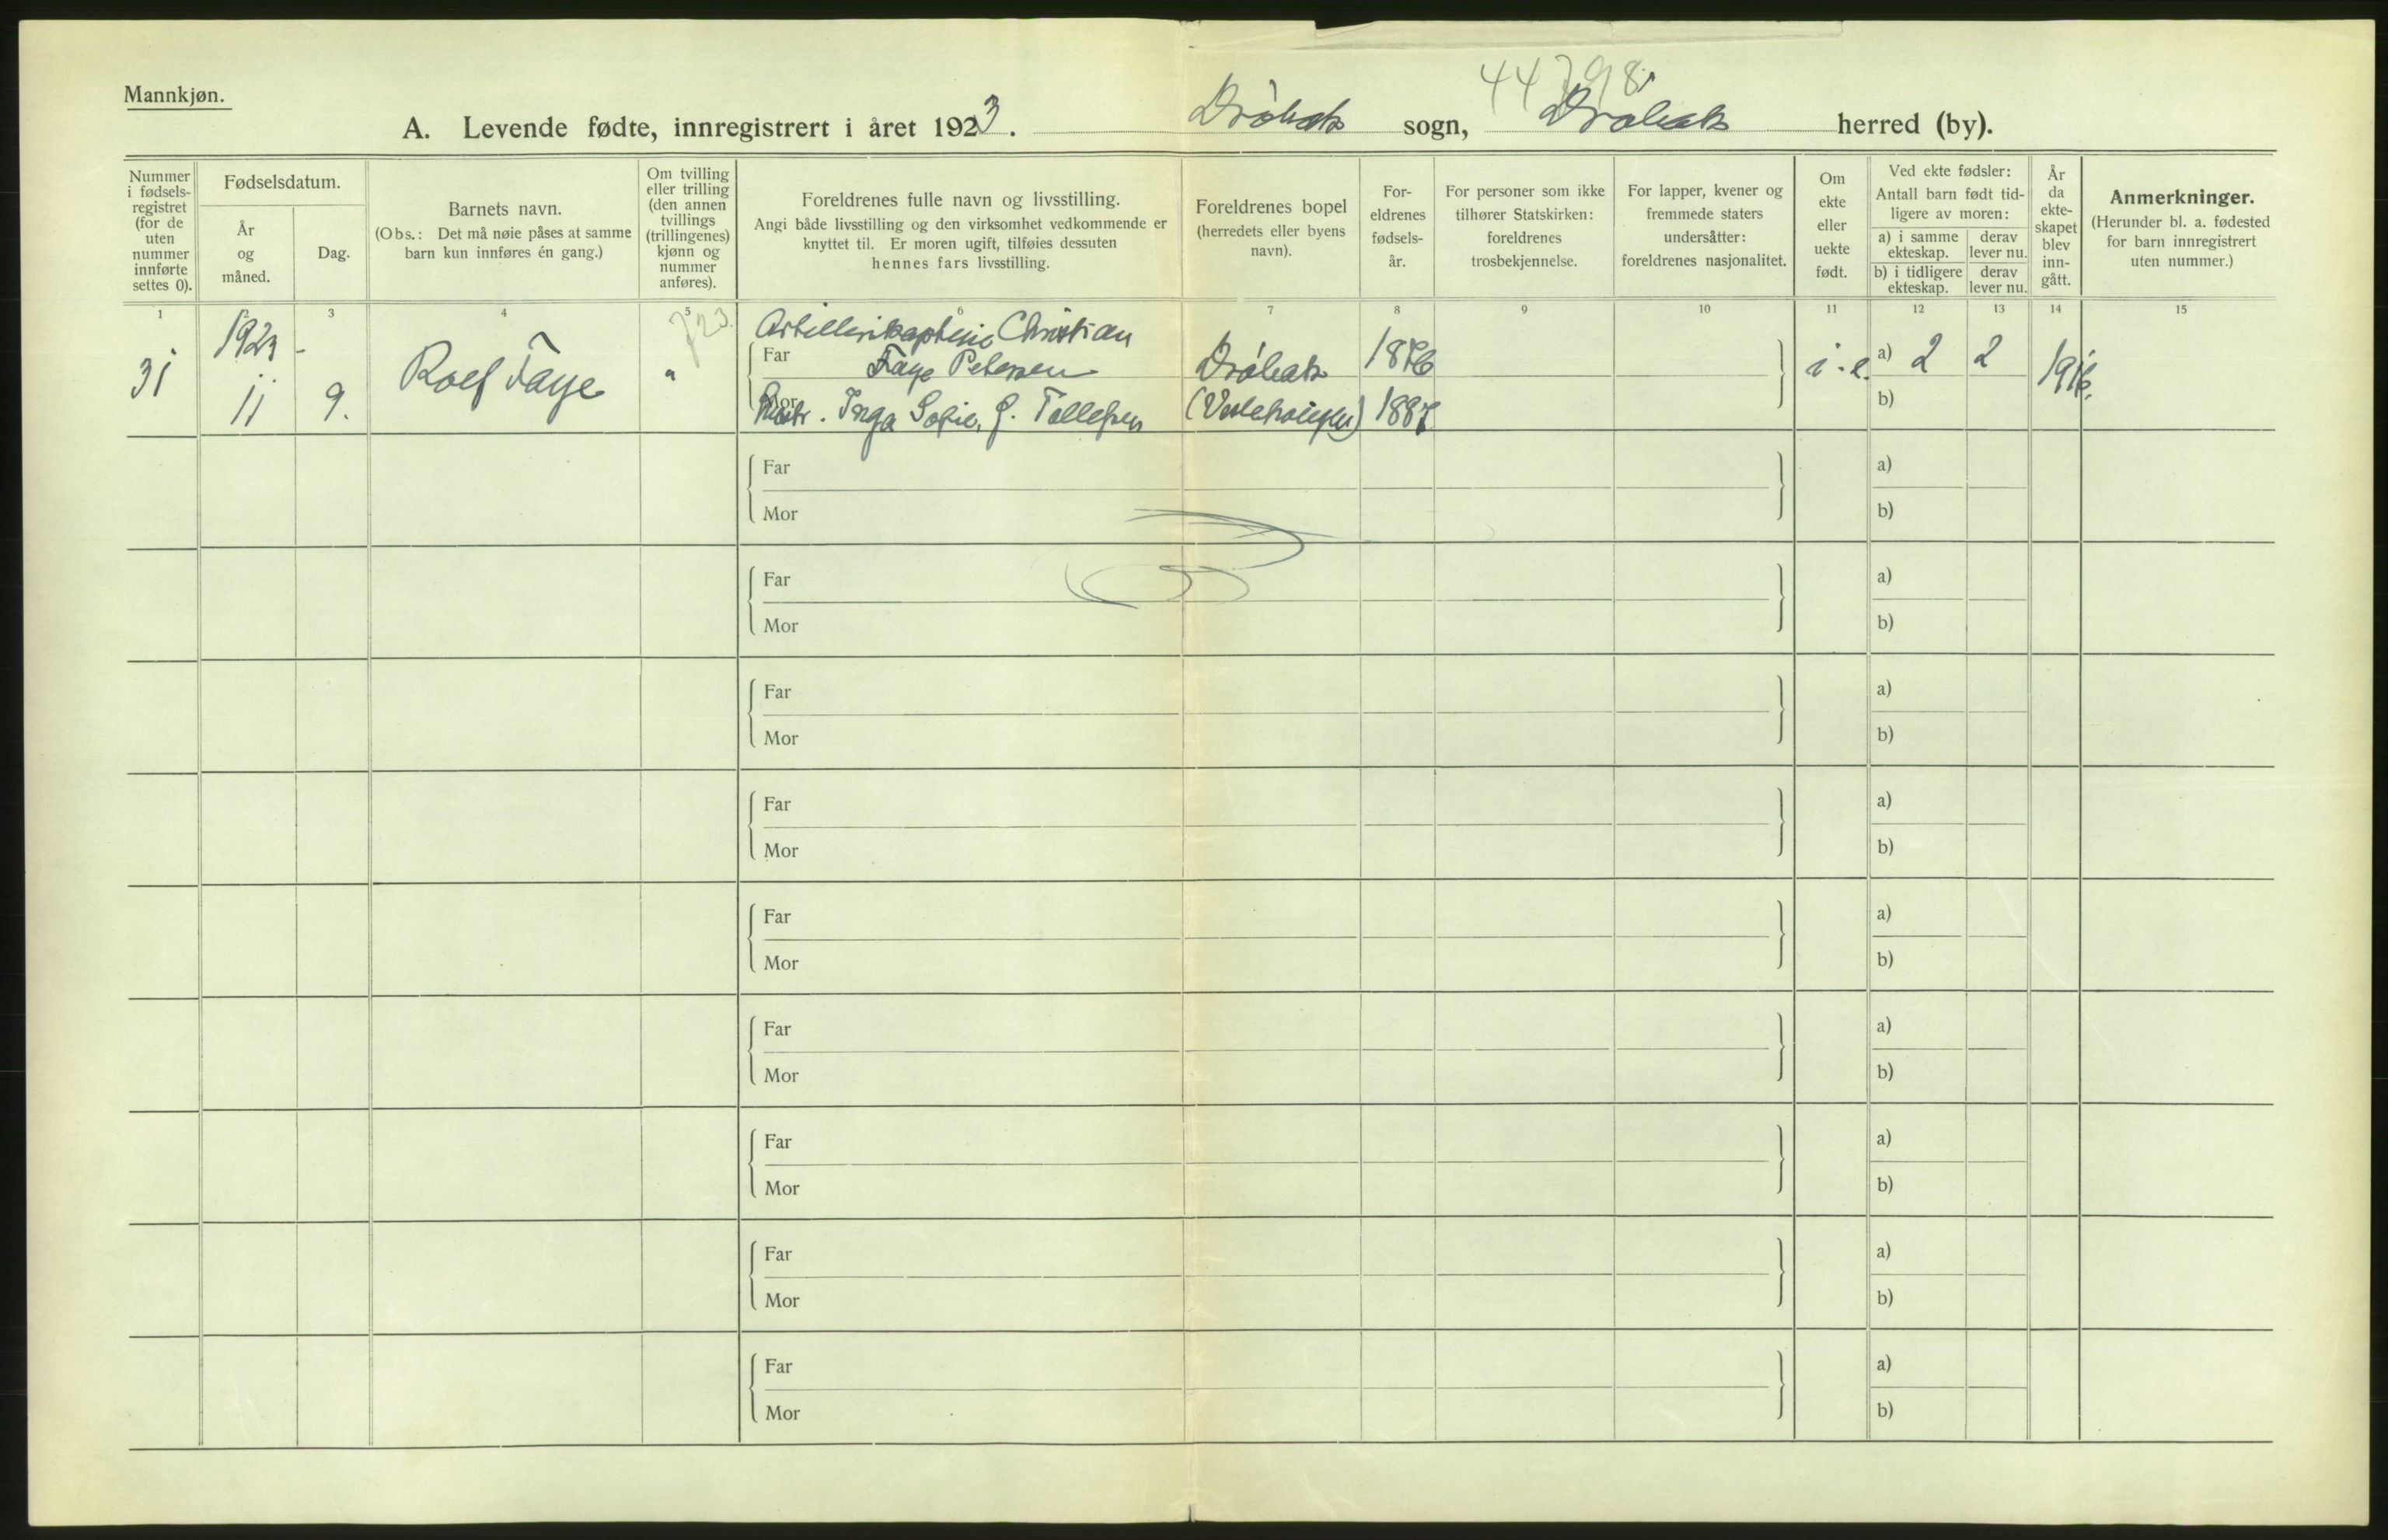 Mannkjøn.
44798
A. Levende fødte, innregistrert i året 1923. Drøbak sogn, Drøbak herred (by).
Nummer i fødsels-registret (for de uten nummer innførte settes 0).
Fødselsdatum.
År og måned.
Dag.
Barnets navn.
(Obs.: Det må nøie påses at samme barn kun innføres én gang.)
Om tvilling eller trilling (den annen tvillings (trillingenes) kjønn og nummer anføres).
Foreldrenes fulle navn og livsstilling.
Angi både livsstilling og den virksomhet vedkommende er knyttet til. Er moren ugift, tilføies dessuten hennes fars livsstilling.
Foreldrenes bopel (herredets eller byens navn).
For-eldrenes fødsels-år.
For personer som ikke tilhører Statskirken: foreldrenes trosbekjennelse.
For lapper, kvener og fremmede staters undersåtter: foreldrenes nasjonalitet.
Om ekte eller uekte født.
Ved ekte fødsler:
Antall barn født tid-ligere av moren:
a) i samme ekteskap.
derav lever nu.
b) i tidligere ekteskap.
derav lever nu.
År da ekte-skapet blev inn-gått.
Anmerkninger.
(Herunder bl. a. fødested for barn innregistrert uten nummer.)
1 2 3 4 5 6 7 8 9 10 11 12 13 14 15
723.
31 1923 11 9. Rolf Faye "
Artillerikaptein Christian
Far Faye Petersen Drøbak 1876 i. e. a) 2 2 1916.
Mor Hustr. Inga Sofie, f. Tollefsen 1887 b)
Far a)
Mor b)
Far a)
Mor b)
Far a)
Mor b)
Far a)
Mor b)
Far a)
Mor b)
Far a)
Mor b)
Far a)
Mor b)
Far a)
Mor b)
Far a)
Mor b)